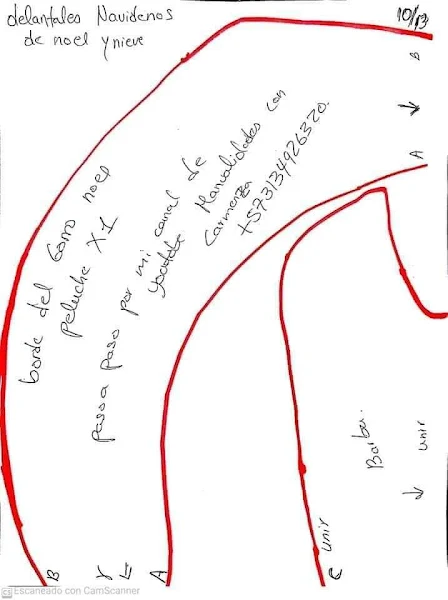 delantales Navideños
de noel y nieve
10/13
B
A
borde del Gorro noel
peluche X1
paso a paso por mi canal de
youtube Manualidades con
Carmenza
+573134926320.
Barba.
unir
unir
B
A
C
CS Escaneado con CamScanner